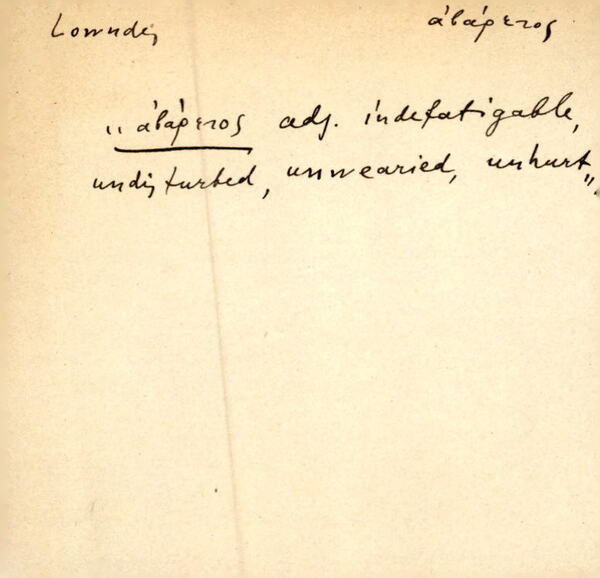 Lowndes ἀβάρετος
"ἀβάρετος adj. indefatigable,
undisturbed, unwearied, unhurt".